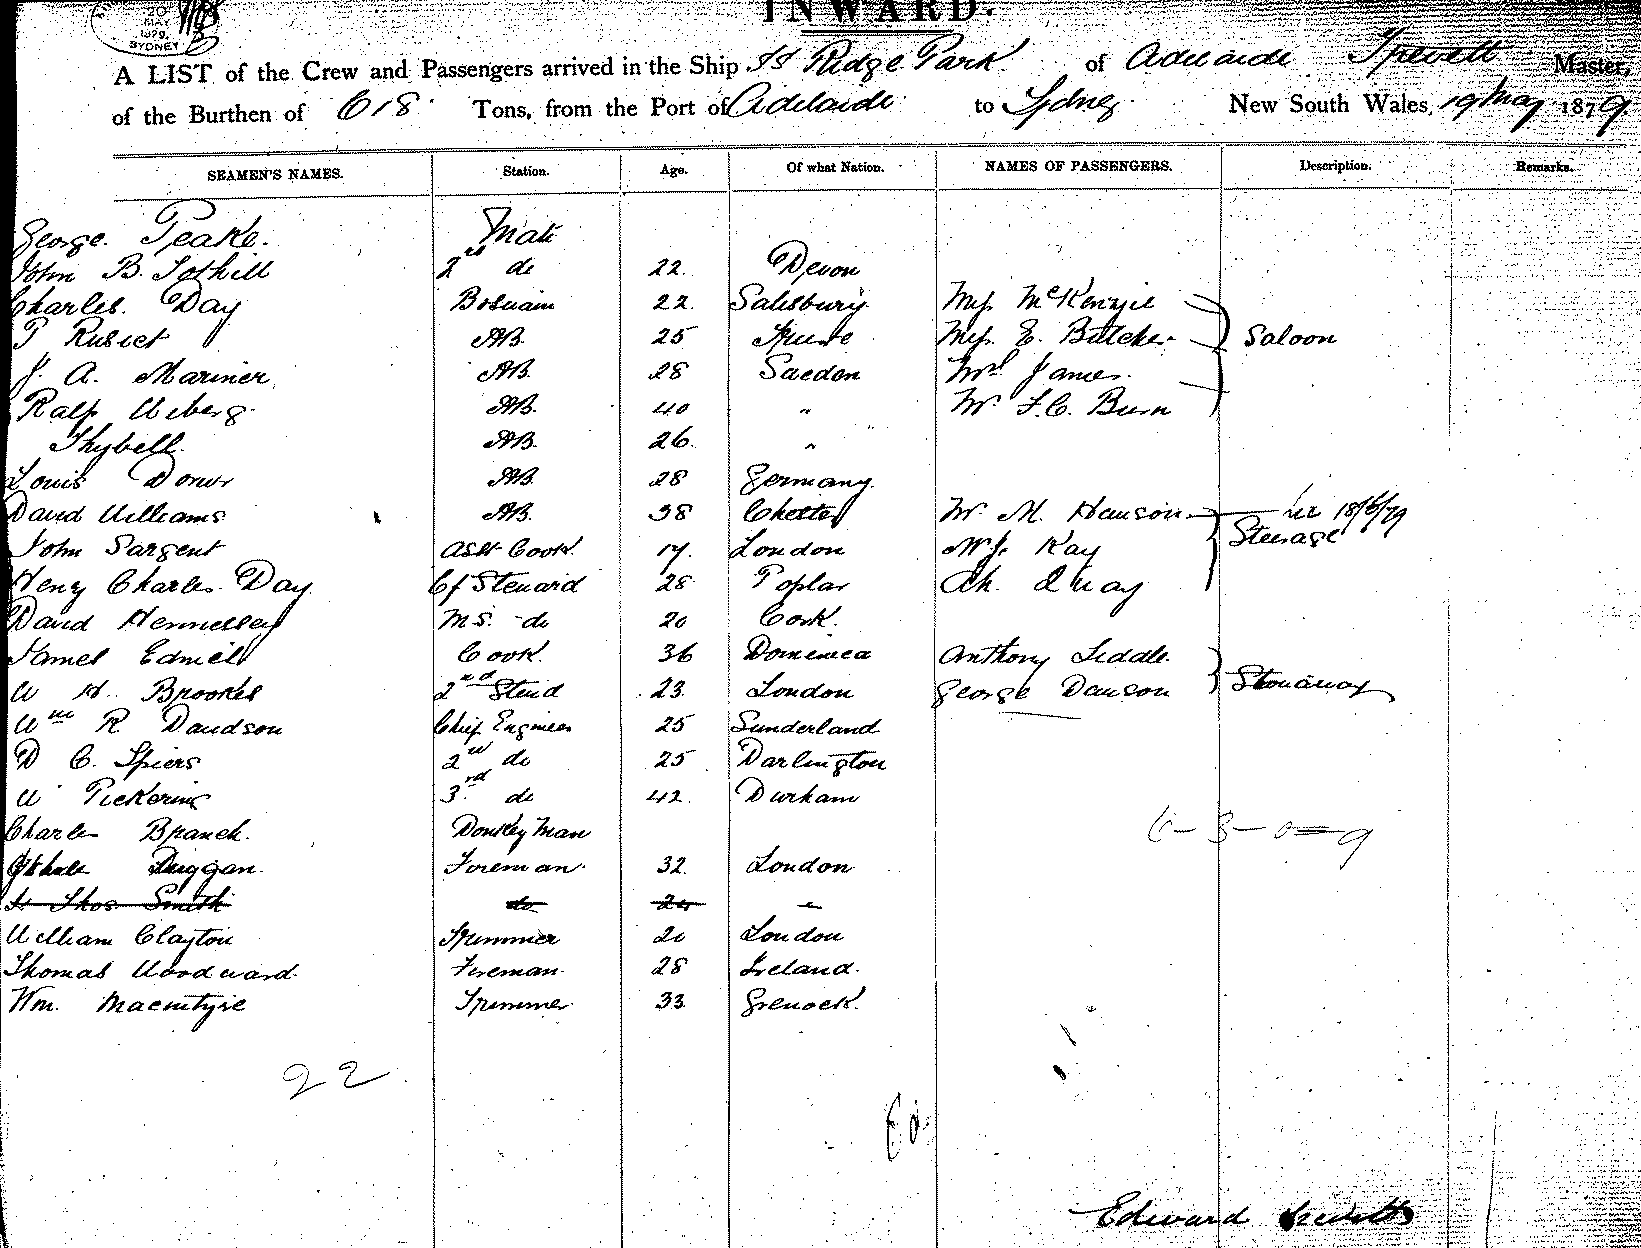 20
MAY
1879
SYDNEY
INWARD.
A LIST of the Crew and Passengers arrived in the Ship SS Ridge Park of Adelaide Trevett Master,
of the Burthen of 618 Tons, from the Port of Adelaide to Sydney New South Wales, 19 May 1879.
SEAMEN'S NAMES. Station. Age. Of what Nation. NAMES OF PASSENGERS. Description. Remarks.
George Peake. Mate
John B. Tothill 2nd do 22. Devon
Charles Day Bosuain 22. Salisbury Miss McKenzie
P 25 Miss E. Butcher Saloon
J. A. Mariner AB. 28 Sweden Mrs James.
Ralf AB. 40 " Mr F. C. Burn
Thybell. AB. 26 "
Louis AB. 28 Germany.
David Williams AB. 38 Chester Mr M. Hanson 79
John Sargent Asst Cook. 17. London Kay Steerage
Henry Charles Day. Cf Steward 28 Poplar Ah Quay
David Hennessey M.S. do 20 Cork.
James Cook. 36 Domenica Anthony Liddle
W H. Brookes 2nd Stewd 23. London George Dawson Stowaway
Wm R Davidson Chief Engineer 25 Sunderland
D C. Spiers 2nd do 25 Darlington
W Pickering 3rd do 42. Durham
Charles Branch. Donkey Man
Duggan. Foreman 32. London
Thos Smith do
William Clayton Trimmer 20 London
Thomas Woodward. Fireman 28 Ireland.
Wm. Macintyre Trimmer 33 Grenock.
22
Edward Trevett